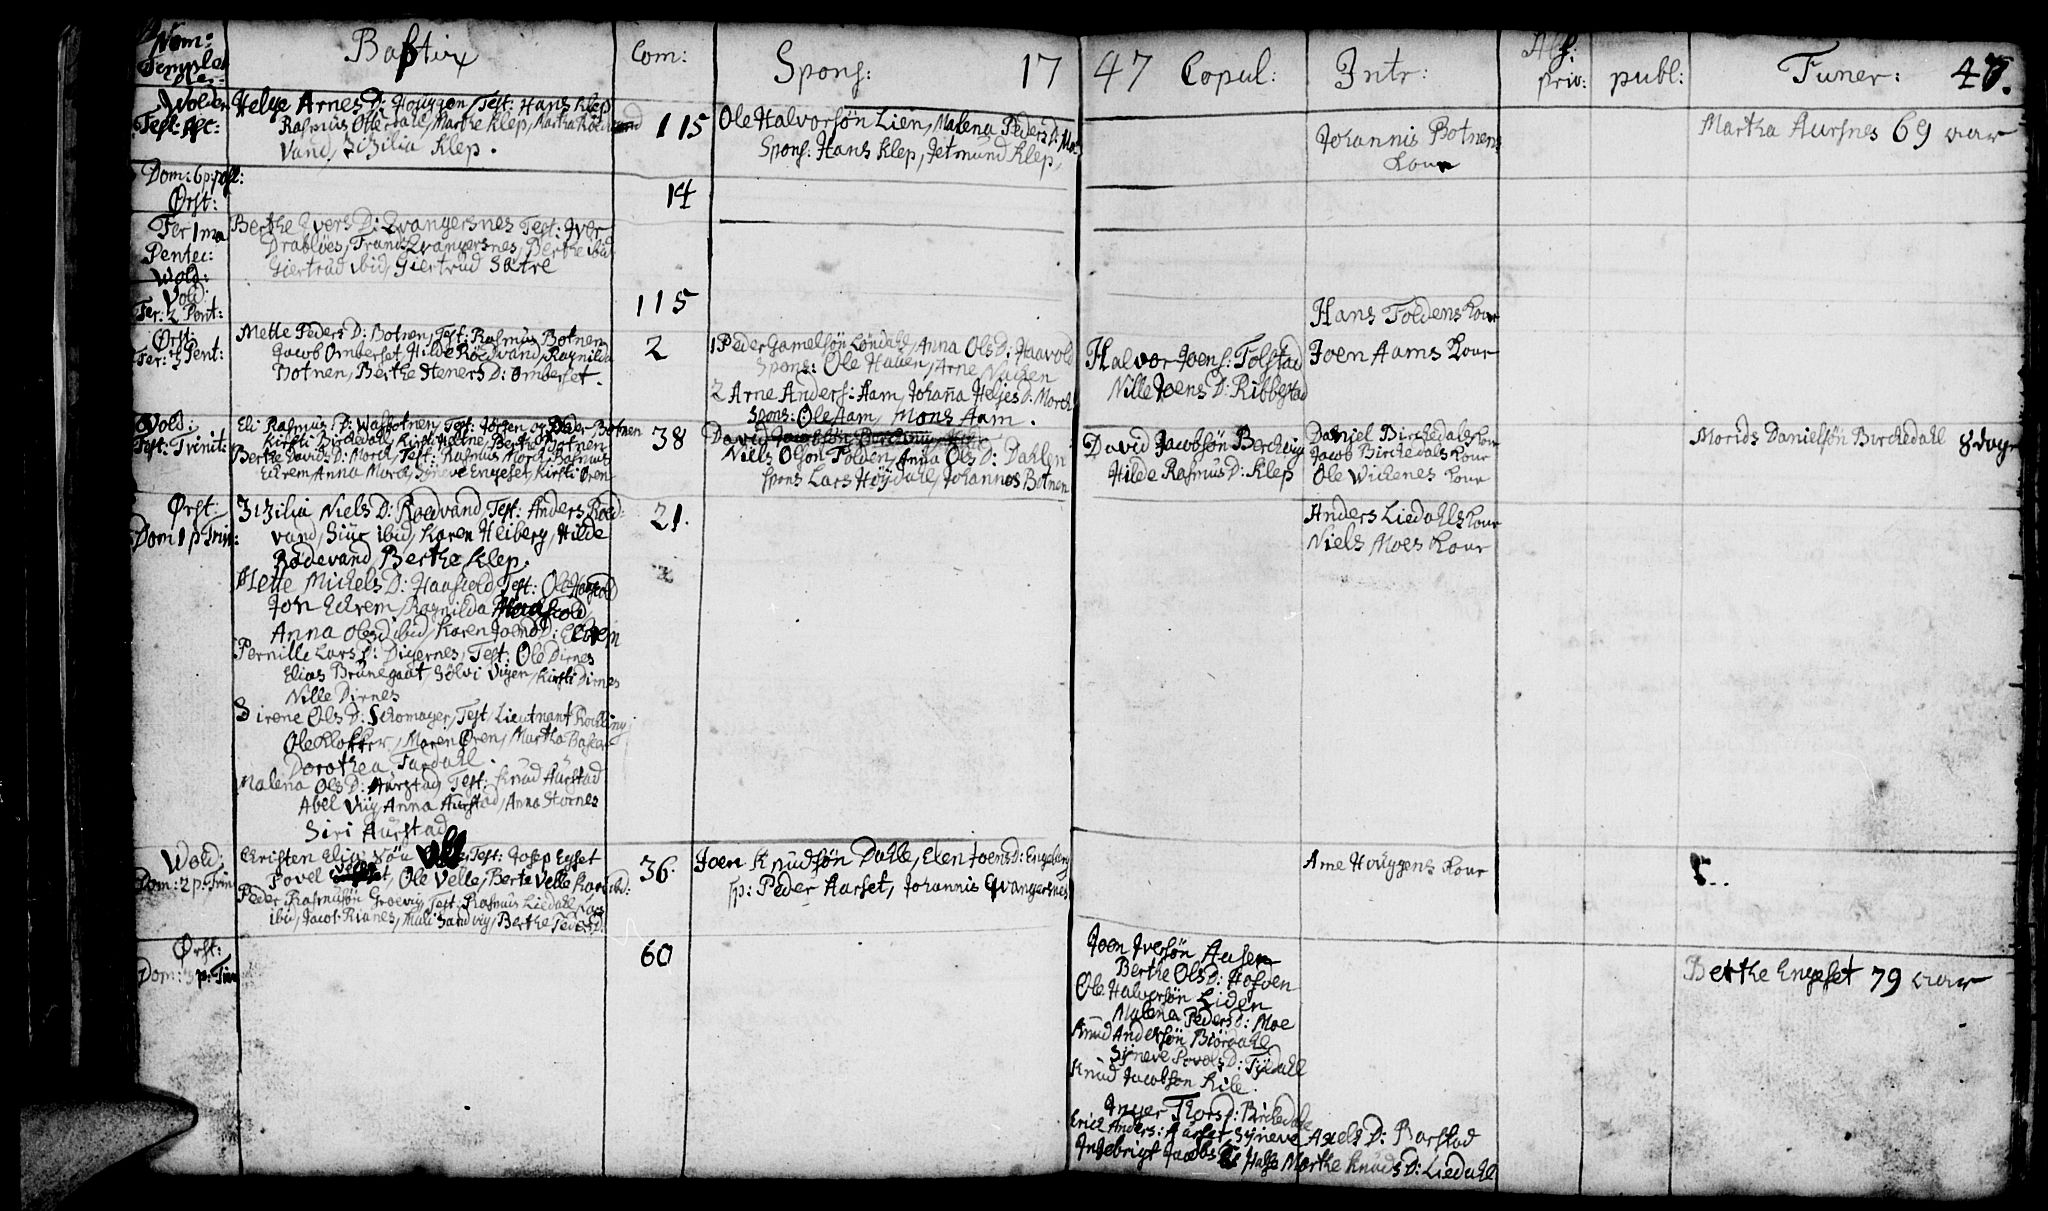 Nom:
Templor
Baptiz
Com:
Spons:
17
47 Copul:
Intr:
priv:
publ:
Funer:
47.
Wolden
Fest: Asc:
Helge Arnes D: Houggen/Test: Hans Klep
Rasmus Marthe Klep,
Vand, Zizilia Klep.
115
Ole Halvorsøn Lien, Malena Peders D: Moe
Spons: Hans Klep, Jetmund Klep,
Johannis Botnens
Kour
Martha Aursnes 69 aar
Dom: 6 p: pasc:
Ørst:
14
Fer 1 ma
Pentec:
Wold:
Berthe Ivers D: Qvangersnes Test: Iver
Drabløes, Qvangersnes, Berthe ibid
Giertrud ibid, Giertrud Sætre
Vold:
Fer: 2 Pent:
115
Hans Foldens Kour
Ørst:
Fer: 3 Pent:
Mette Peders D: Botnen, Test: Rasmus Botnen
Jacob Omberset, Hilde Rødvand, Ragnilda
Botnen, Berthe Steners D: Omberset.
2
1 Peder Gamelsøn Løndahl, Anna Ols D: Haavold
Spons: Ole Hauen, Arne
2 Arne Anders: Aam, Johaña Helges D: Morch
Spons: Ole Aam, Mons Aam.
Halvor Joens: Folstad
Nille Joens D: Ribbestad
Joen Aams Kour
Vold:
Fest: Trinit:
Eli Rasmus D: Wasbotnen, Test: Jørgen og Peder Botnen
Kirsti Birchedahl, Berthe Botnen
Berthe Davids D: Morch, Test: Rasmus Morch, Rasmus
Eckrem, Anna Morch, Syneve Engeset, Kirsti Øren
38
David Jacobsøn Berchvig
Niels Olson Folden, Anna Ols D: Dahlen
Spons Lars Høydahl, Johannes Botnen
David Jacobsøn Berchvig
Hilde Rasmus D: Klep
Daniel Birchedals Kour
Jacob Birchedals Kour
Ole Wichenes Kour
Morids Danielsøn Birchedahl 8 dage
Ørst:
Dom 1 p: Trin:
Zizilia Niels D: Rødvand Test: Anders Rød:
vand, Siur ibid, Karen Heiberg, Hilde
Rødevand, Berthe Klep.
21.
Anders Liedahls Kour
Niels Moes Kour
Mette Michels D: Haaskold Test: Ole
Jon Eckrem, Ragnilda
Anna Olsd ibid, Karen Joens D: Eckrem
Pernille Lars D: Digernes, Test: Ole Dirnes
Elias Brunegaut, Sølvi Vigen, Kirsti Dirnes
Nille Dirnes
Sirene Ols D: Schomager, Test, Lieutnant
Ole Klokker, Maren Øren, Martha
Dorothea
Malena Ols D: Aurstad, Test: Knud Aurstad
Abel Viig, Anna Aurstad, Anna Stornes
Siri Aurstad
Wold:
Dom: 2 p: Trin
Christen Elis Søn Test: Josep Egset
Povel Ole Velle, Berte Velle, Kari ibid:
Peder Rasmusøn Groevig Test: Rasmus Liedahl, Lars
ibid, Jacob Rianes, Mali Sandvig, Berthe Peders D:
36.
Joen Knudsøn Dahle, Elen Joens D: Engeberg
sp: Peder Aarset, Johannis Qvangersnes
Arne Houggens Kour
Ørst:
Dom: 3 p: Trin
60
Joen Iversøn Aasen
Berthe Ols D: Hofven
Ole Halvorsøn Liden
Malena Peders D: Moe
Knud Andersøn Biørdahl
Syneve Povels D: Fyldahl
Knud Jacobsøn Kile
Inger Thors D: Birchedahl
Erich Anders: Aarset, Syneve Axels D: Barstad
Ingebrigt Jacobs Marthe Knuds D: Liedahl
Berthe Engeset 79 aar